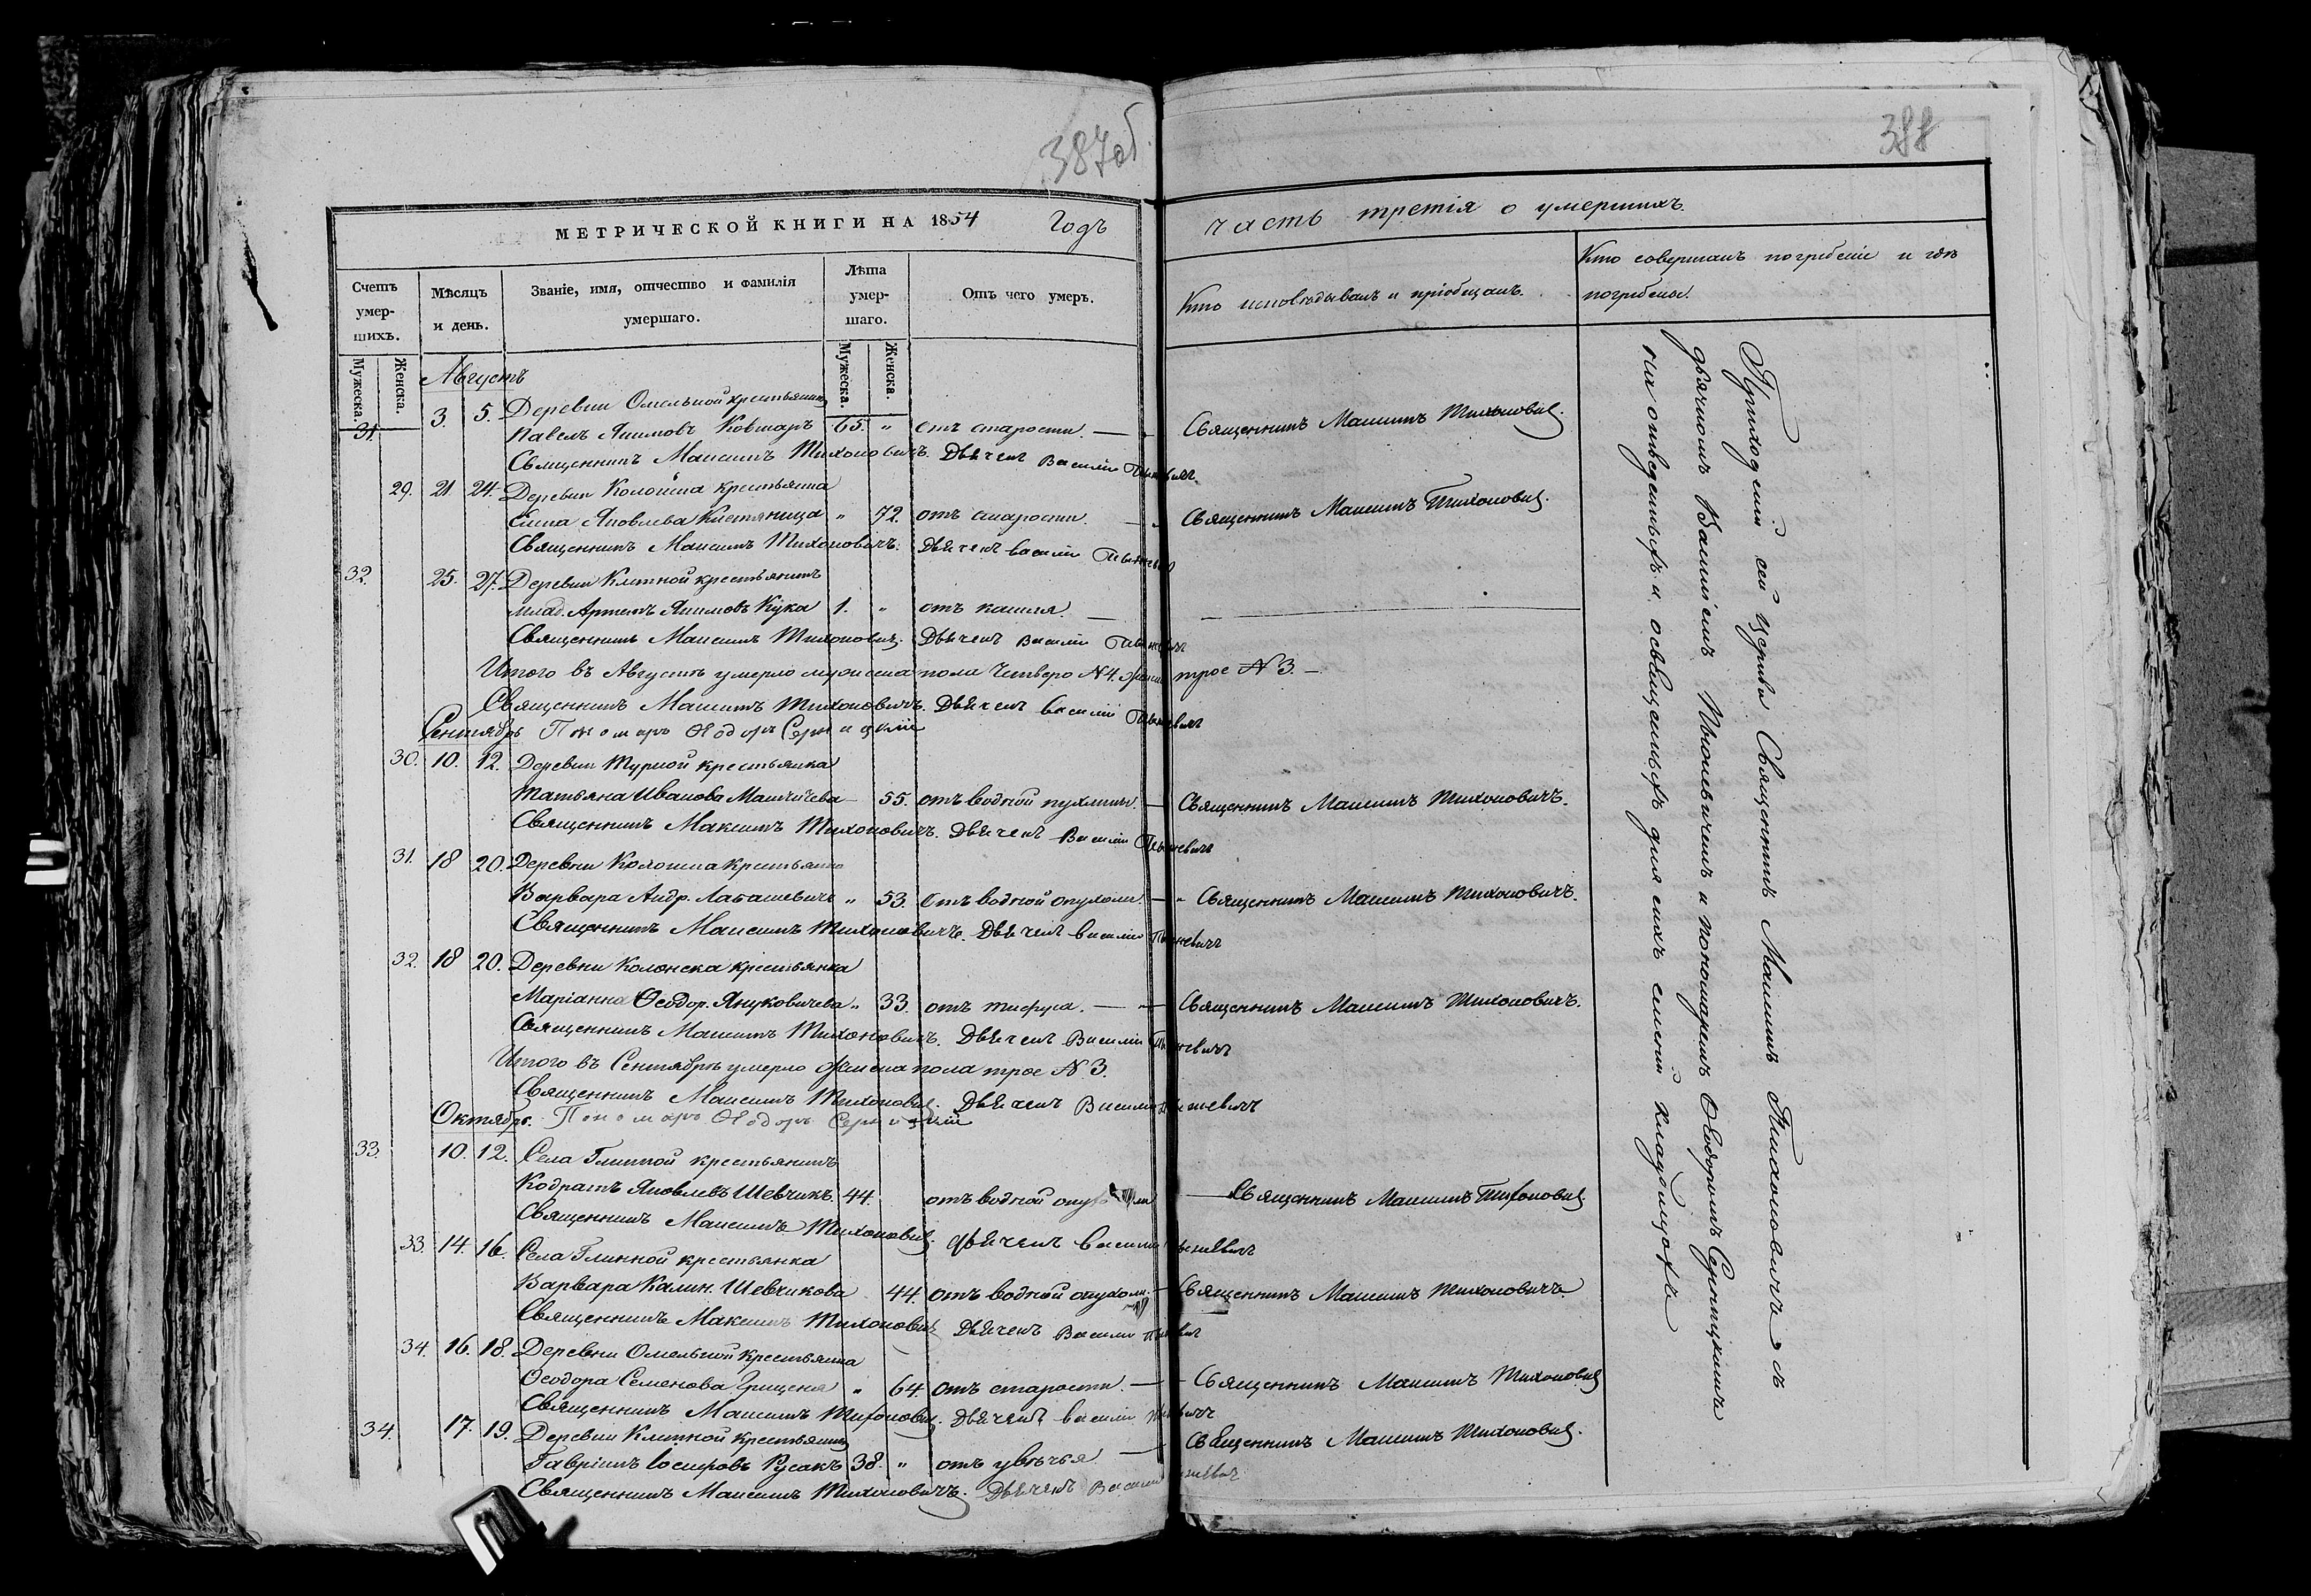 387 об.
МЕТРИЧЕСКОЙ КНИГИ НА 1854 Годъ
Счетъ умершихъ.
Мѣсяцъ и день.
Званіе, имя, отчество и фамилія умершаго.
Лѣта умершаго.
Отъ чего умеръ.
Мужеска.
Женска.
Мужеска.
Женска.
Августъ
31. 3. 5. Деревни Омельной крестьянинъ
Павелъ Якимовъ Ковшаръ 65. „ отъ старости. —
Священникъ Максимъ Тихоновичъ. Дьячекъ Василій
29. 21. 24. Деревни Колонска крестьянка
Яковлева „ 72. отъ старости.
Священникъ Максимъ Тихоновичъ. Дьячекъ Василій
32. 25. 27. Деревни Клѣтной крестьянинъ
млад. Артемъ Якимовъ Кука 1. „ отъ кашля. —
Священникъ Максимъ Тихоновичъ. Дьячекъ Василій
Итого въ Августѣ умерло мужеска пола четверо N 4. женска трое N 3. —
Священникъ Максимъ Тихоновичъ. Дьячекъ Василій
Сентябрь Пономаръ Ѳеодоръ Серницкій
30. 10. 12. Деревни Турной крестьянка
Татьяна Иванова 55. отъ водной пухлины. —
Священникъ Максимъ Тихоновичъ. Дьячекъ Василій
31. 18 20. Деревни Колонска крестьянка
Варвара Андр. Лагашевичъ „ 53. отъ водной опухоли. —
Священникъ Максимъ Тихоновичъ. Дьячекъ Василій
32. 18 20. Деревни Колонска крестьянка
Маріанна Ѳеодор. Януковичева „ 33. отъ тифуса. —
Священникъ Максимъ Тихоновичъ. Дьячекъ Василій
Итого въ Сентябрѣ умерло женска пола трое N 3.
Священникъ Максимъ Тихоновичъ. Дьячекъ Василій
Октябрь. Пономаръ Ѳеодоръ Серницкій
33. 10. 12. Села Глинной крестьянинъ
Кодратъ Яковлевъ Шевчикъ 44. отъ водной опухоли
Священникъ Максимъ Тихоновичъ. Дьячекъ Василій
33. 14. 16. Села Глинной крестьянка
Варвара Калин. Шевчикова 44. отъ водной опухоли. —
Священникъ Максимъ Тихоновичъ Дьячекъ Василій
34. 16. 18. Деревни Омельной крестьянка
Ѳеодора Семенова Гриценя „ 64. отъ старости. —
Священникъ Максимъ Тихоновичъ. Дьячекъ Василій
34. 17. 19. Деревни Клѣтной крестьянинъ
Гавріилъ Іосифовъ Русакъ 38. „ отъ увѣчья
Священникъ Максимъ Тихоновичъ. Дьячекъ Василій
388
часть третія о умершихъ.
Кто исповѣдывалъ и пріобщалъ.
Кто совершалъ погребеніе и гдѣ погребены.
Священникъ Максимъ Тихоновичъ.
Священникъ Максимъ Тихоновичъ.
Священникъ Максимъ Тихоновичъ.
Священникъ Максимъ Тихоновичъ.
Священникъ Максимъ Тихоновичъ.
Священникъ Максимъ Тихоновичъ.
Священникъ Максимъ Тихоновичъ.
Священникъ Максимъ Тихоновичъ
Священникъ Максимъ Тихоновичъ.
Приходскій сей церкви Священникъ Максимъ Тихоновичъ съ
дьячкомъ Василіемъ и пономаремъ Ѳеодоромъ Серницкимъ
на отведенныхъ и освященныхъ для сихъ селеній кладбищахъ